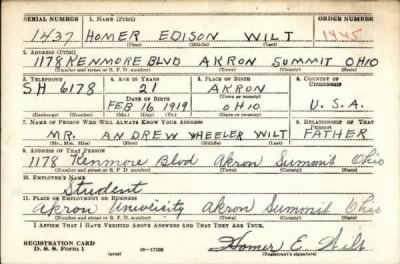 SERIAL NUMBER 1. NAME (Print) ORDER NUMBER
1437 HOMER EDISON WILT 1445
(First) (Middle) (Last)
2. ADDRESS (Print)
1178 KENMORE BLVD AKRON SUMMIT OHIO
(Number and street or R. F. D. number) (Town) (County) (State)
3. TELEPHONE 4. AGE IN YEARS 5. PLACE OF BIRTH 6. COUNTRY OF CITIZENSHIP
SH 6178 21 AKRON
DATE OF BIRTH
FEB 16 1919 OHIO U.S.A.
(Exchange) (Number) (Mo.) (Day) (Yr.) (State or country)
7. NAME OF PERSON WHO WILL ALWAYS KNOW YOUR ADDRESS 8. RELATIONSHIP OF THAT PERSON
MR. ANDREW WHEELER WILT FATHER
(Mr., Mrs., Miss) (First) (Middle) (Last)
9. ADDRESS OF THAT PERSON
1178 Kenmore Blvd Akron Summit Ohio
(Number and street or R. F. D. number) (Town) (County) (State)
10. EMPLOYER'S NAME
Student
11. PLACE OF EMPLOYMENT OR BUSINESS
Akron University Akron Summit Ohio
(Number and street or R. F. D. number) (Town) (County) (State)
I AFFIRM THAT I HAVE VERIFIED ABOVE ANSWERS AND THAT THEY ARE TRUE.
REGISTRATION CARD
D. S. S. Form 1 (over) Homer E. Wilt
(Registrant's signature)